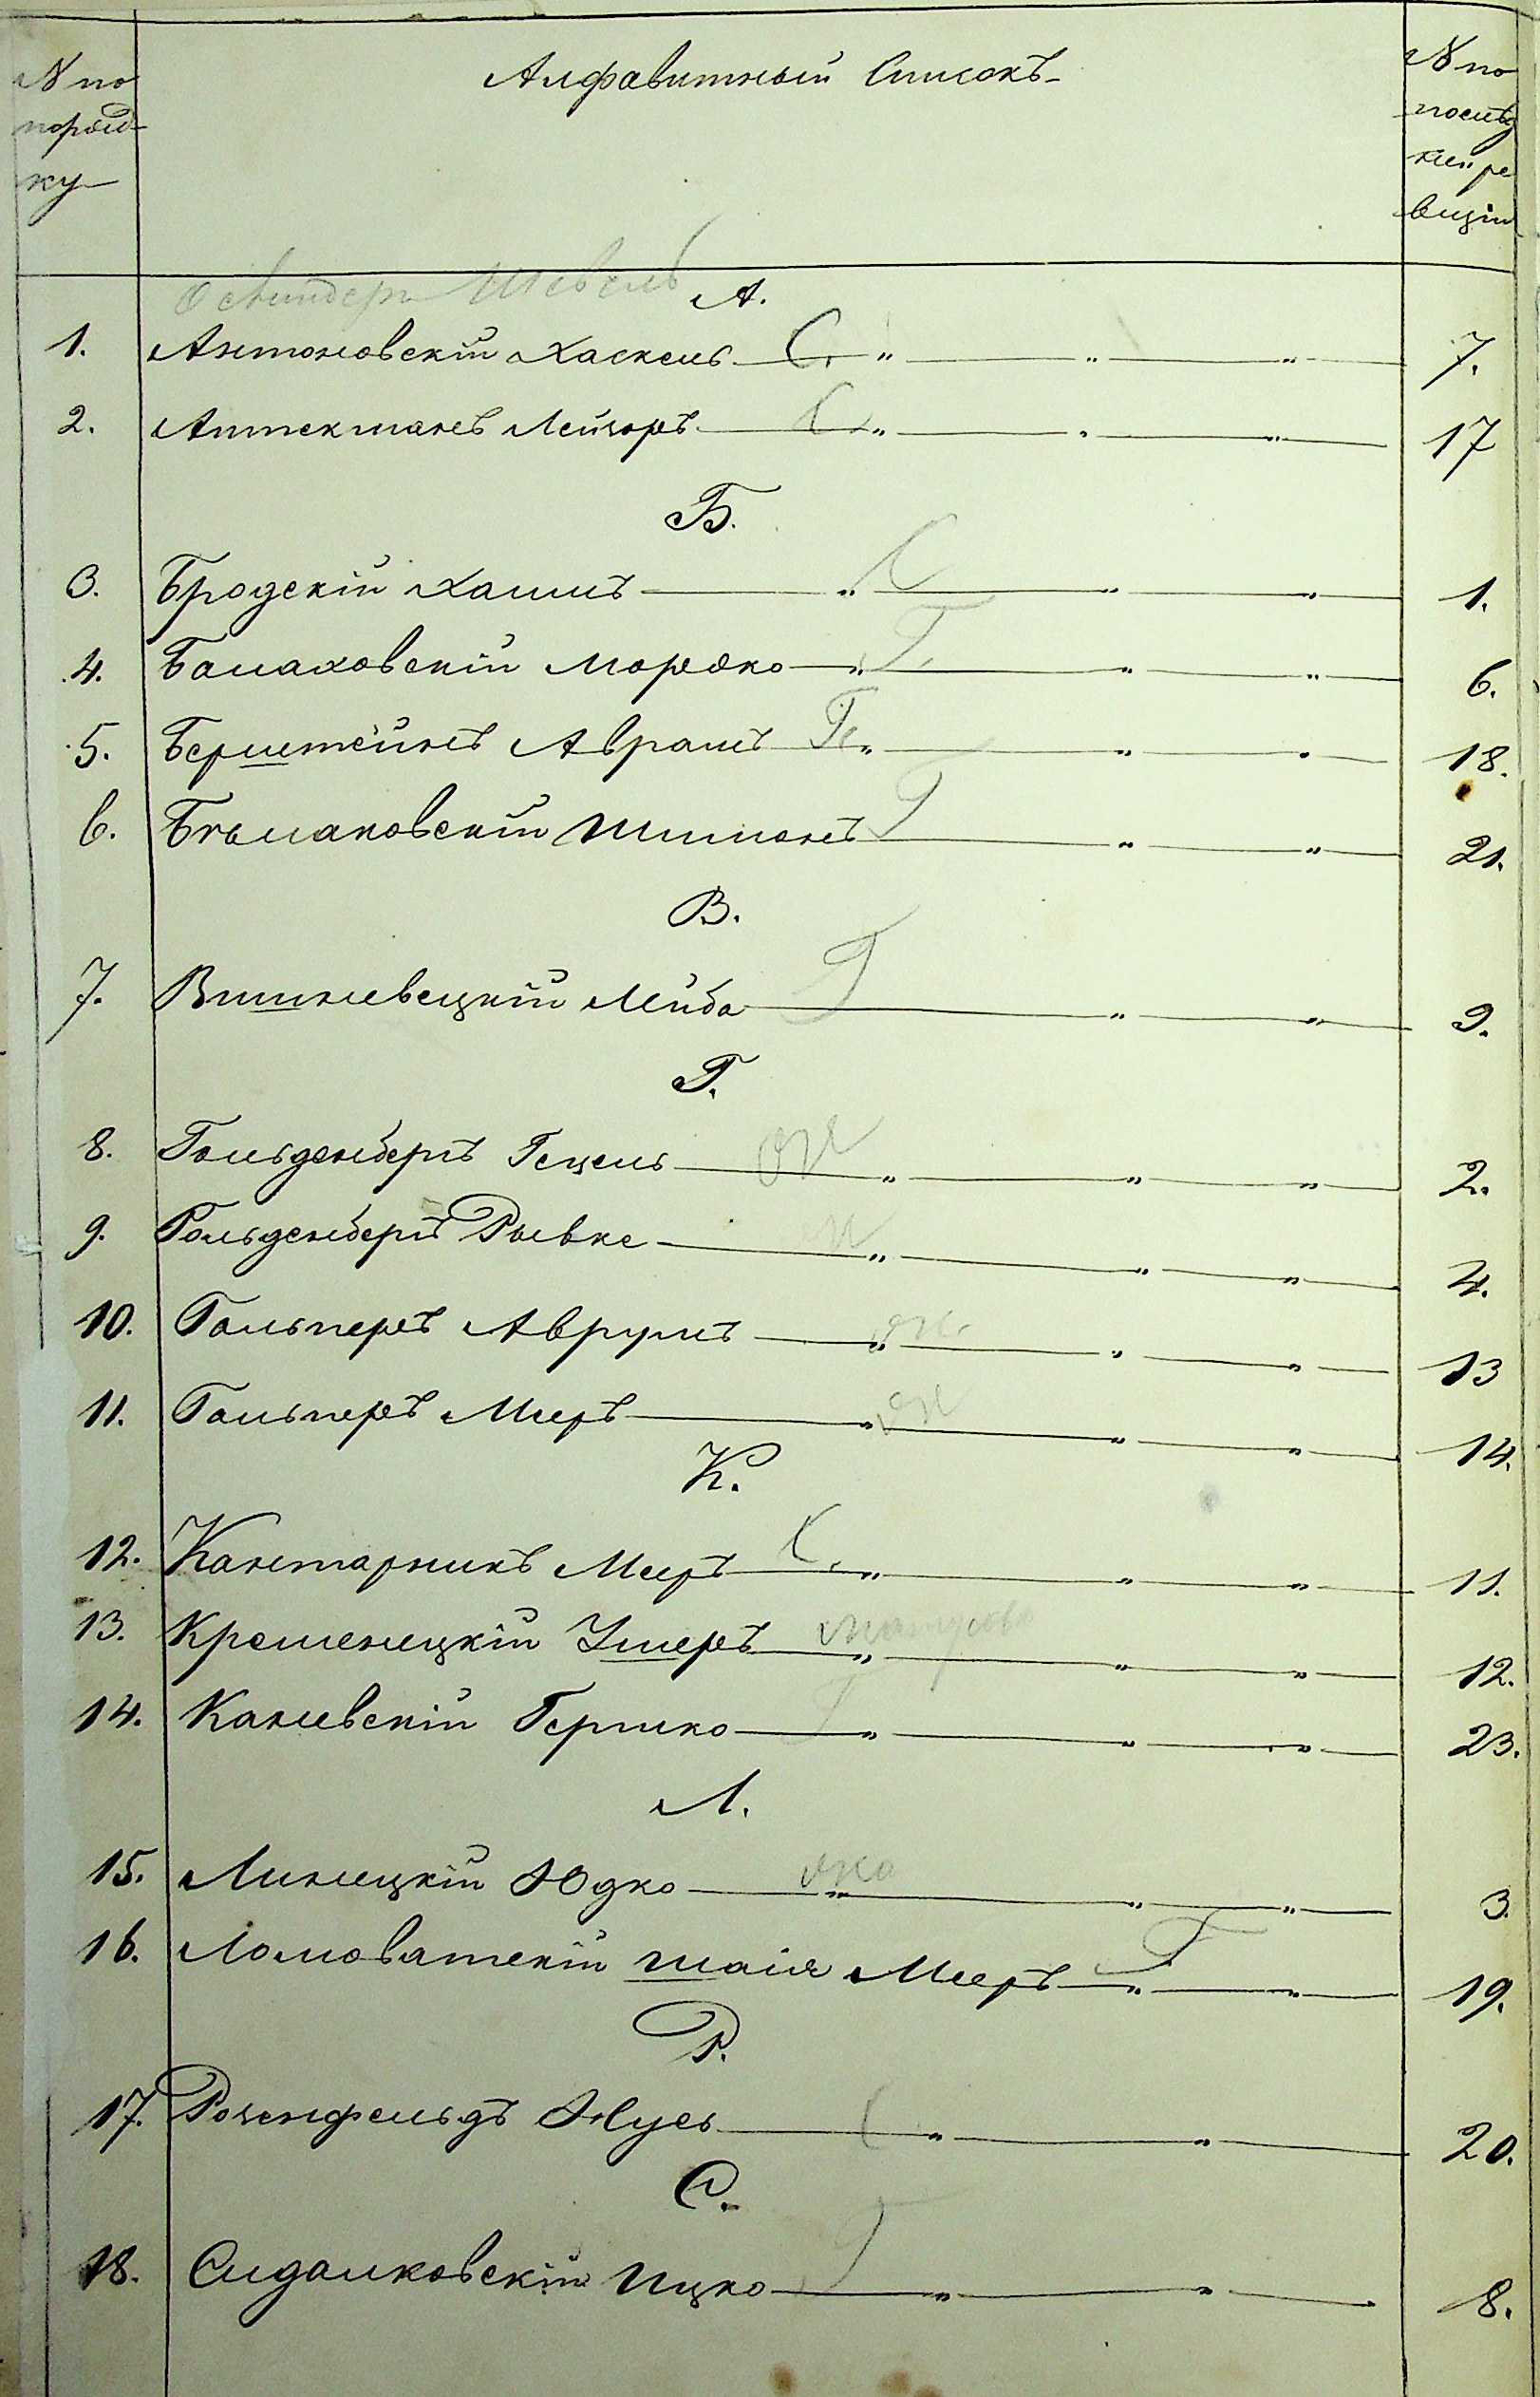 № по порядку
Алфавитный Списокъ
№ по послѣдней ревизіи
Шевель
А.
1. Антоновскій Хаскель С. 7.
2. Аптекманъ Лейзоръ С. 17
Б.
3. Бродскій Хаимъ С 1.
4. Балаховскій Мордко Г. 6.
5. Берштейнъ Аврамъ Г. 18.
6. Бѣлаковскій Шимонъ Г 21.
В.
7. Вишневецкій Лейба Г 9.
Г.
8. Гольденбергъ Гецель ок 2.
9. Гольденбергъ Рывке 4.
10. Гальперъ Аврумъ ок 13
11. Гальперъ Меръ ок 14.
К.
12. Кантарникъ Меръ С. 11.
13. Кременецкій Ушеръ 12.
14. Каневскій Гершко 23.
Л.
15. Линецкій Юдко око 3.
16. Ломоватскій Шаія Мееръ Г 19.
Р.
17. Розенфельдъ Юуль 20.
С.
18. Сидалковскій Ицко Г 8.